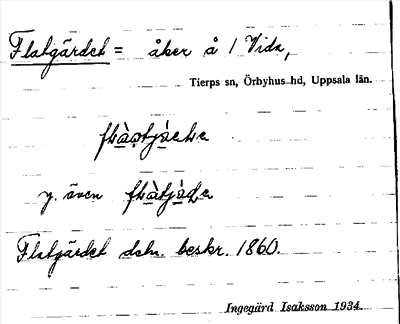 Flatgärdet = åker å 1 Vida,
Tierps sn, Örbyhus hd, Uppsala län.
y. även
Flatgärdet dsbr. beskr. 1860.
Ingegärd Isaksson 1934.